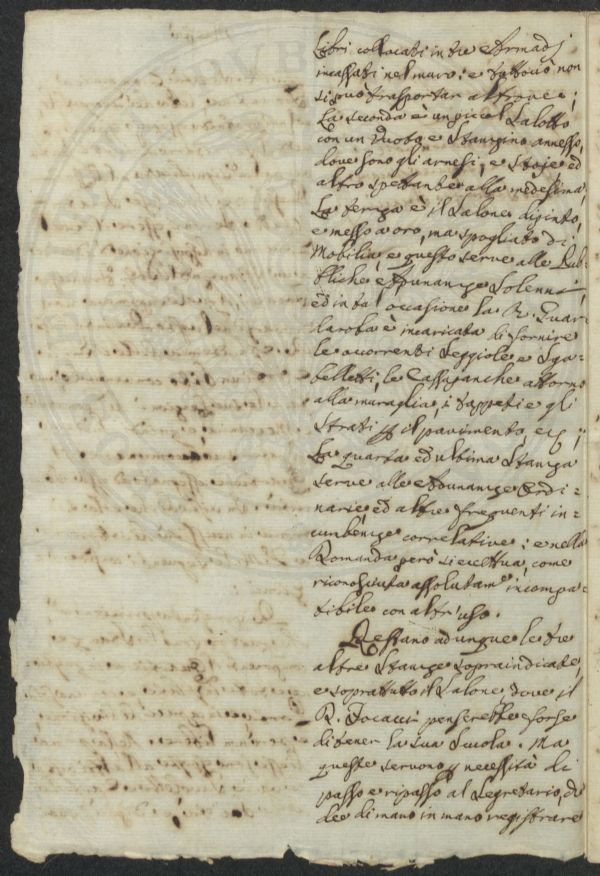 Libri collocati in tre Armadj
incassati nel muro: e tuttociò non
si può trasportar altrove;
La seconda è un piccol Salotto
con un Vuoto e Stanzino annesso,
dove sono gli arnesi, e Stoje ed
altro spettante alla medesima,
La terza è il Salone dipinto,
e messo a oro, ma spogliato di
Mobilia, e questo serve alle Pub=
bliche Adunanze Solenni,
ed in tal occasione la R. Guar=
daroba è incaricata di fornire
le occorrenti Seggiole e Sga=
belletti, le Cassapanche attorno
alla muraglia, i tappeti e gli
Strati p il pavimento, ec;
La quarta ed ultima Stanza
serve alle Adunanze Ordi=
narie, ed altre frequenti in=
cumbenze correlative: e nella
Domanda però si eccettua, come
riconosciuta assolutam incompa=
tibile con altr'uso.
Restano adunque le tre
altre Stanze sopraindicate,
e soprattutto il Salone, dove il
R. Focacci penserebbe forse
di tener la sua Scuola. Ma
queste servono p necessità di
passo e ripasso al Segretario, che
dee di mano in mano registrare